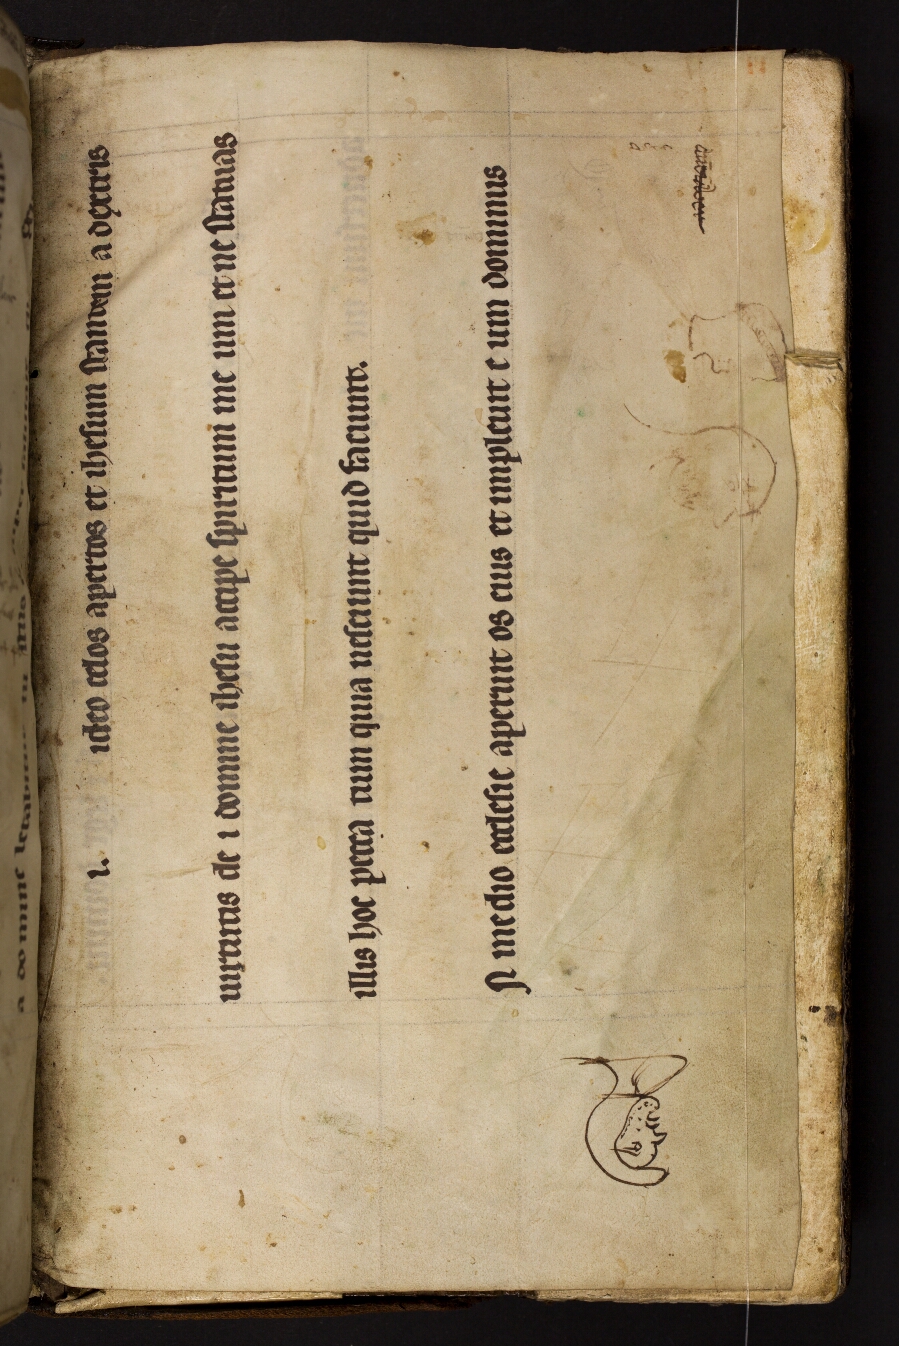 i. ideo celos apertos et ihesum stantem a dextris
uirtutis de i domine ihesu accipe spiritum me um et ne statuas
illis hoc pecca tum quia nesciunt quid faciunt.
N medio ecclesie aperuit os eius et impleuit e um dominus